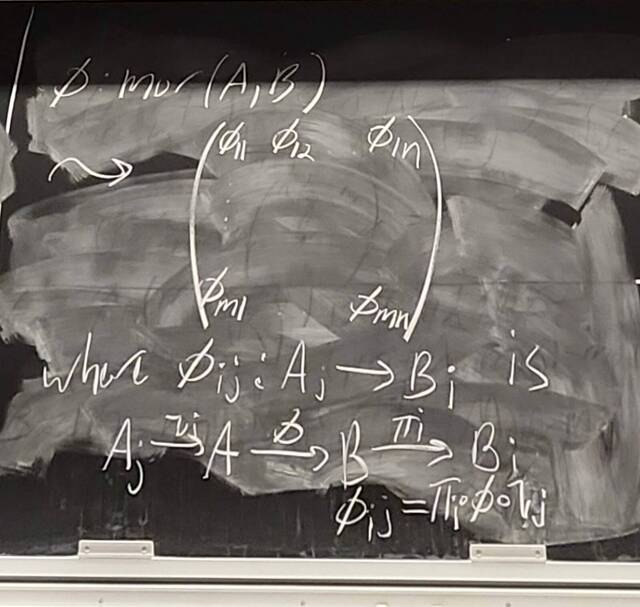 φ: mor(A, B)
⇝ ( φ₁₁ φ₁₂ φ₁ₙ
⋮
φₘ₁ φₘₙ )
where φᵢⱼ: Aⱼ → Bᵢ is
Aⱼ —ιⱼ→ A —φ→ B —πᵢ→ Bᵢ
φᵢⱼ = πᵢ∘φ∘ιⱼ